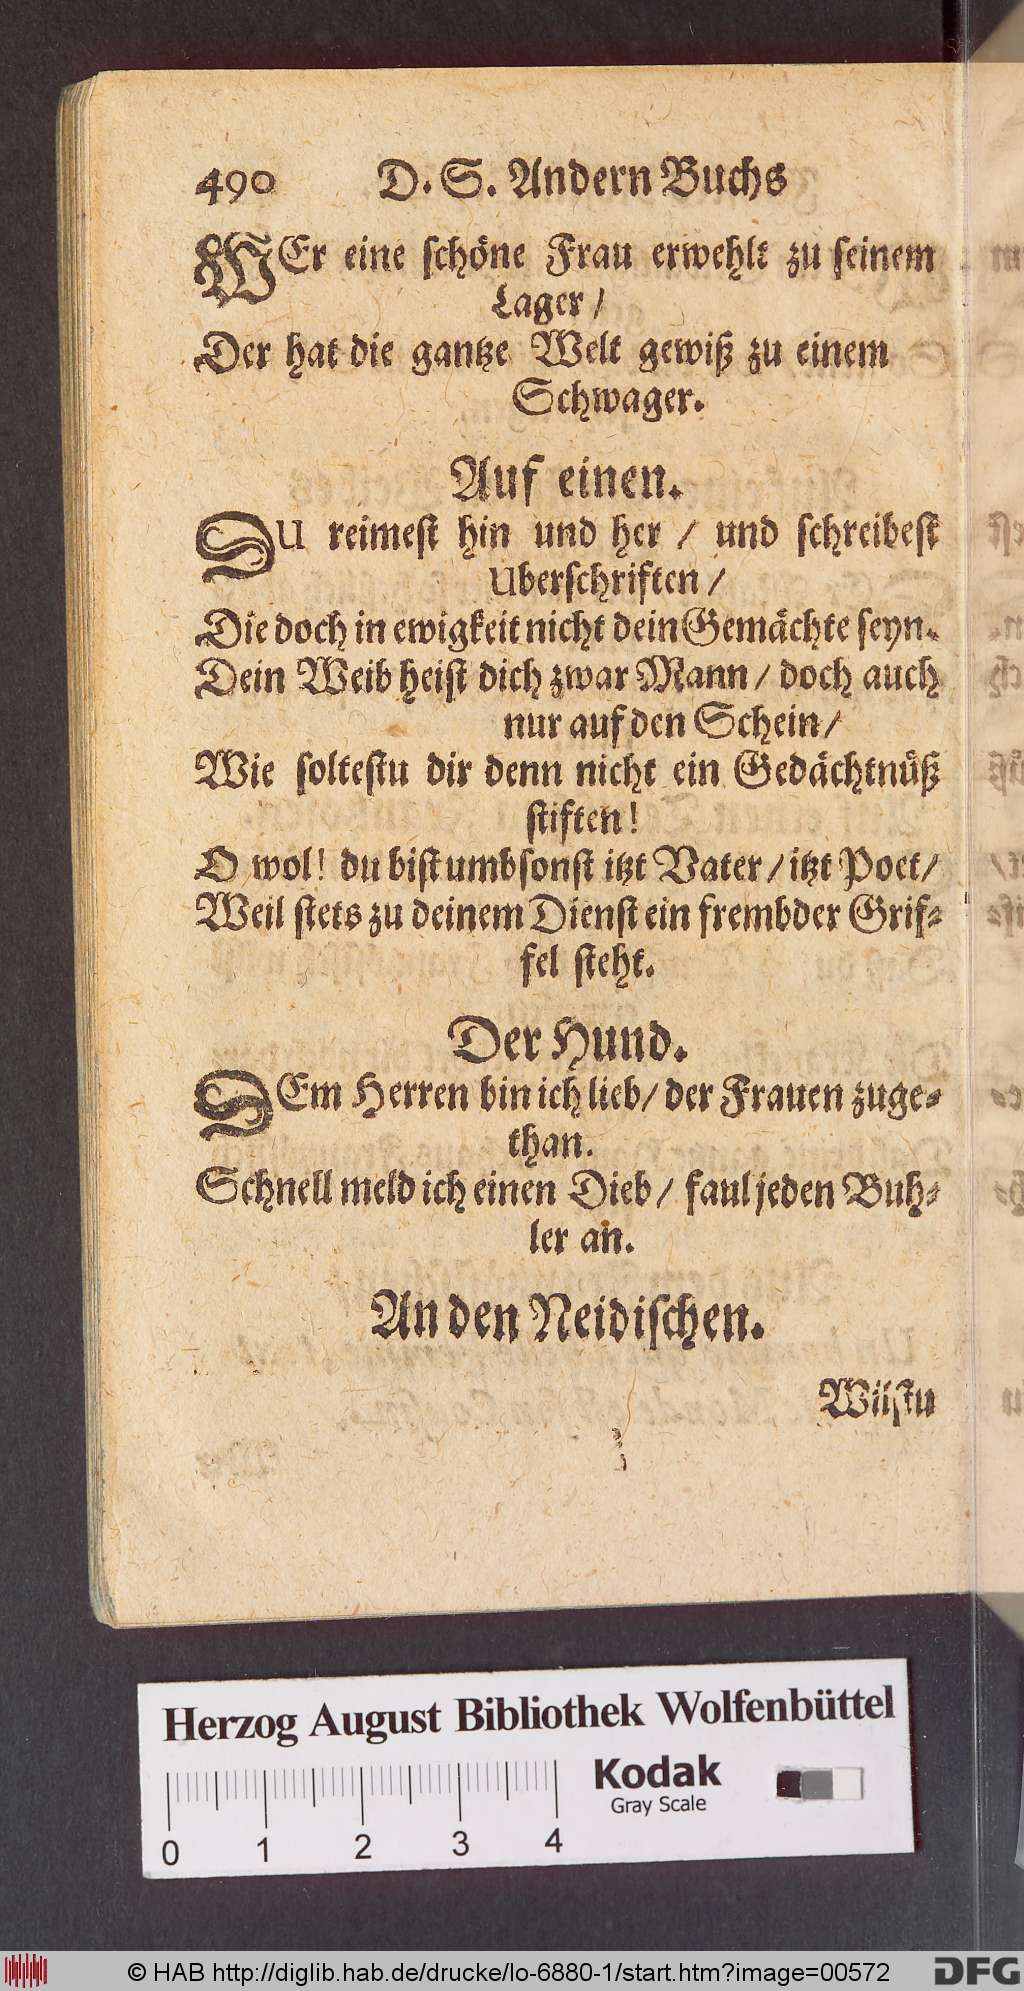 490 D. S. Andern Buchs
WEr eine schöne Frau erwehlt zu seinem
Lager /
Der hat die gantze Welt gewiß zu einem
Schwager.
Auf einen.
DU reimest hin und her / und schreibest
Uberschriften /
Die doch in ewigkeit nicht dein Gemächte seyn.
Dein Weib heist dich zwar Mann / doch auch
nur auf den Schein /
Wie soltestu dir denn nicht ein Gedächtnüß
stiften!
O wol! du bist umbsonst itzt Vater / itzt Poet /
Weil stets zu deinem Dienst ein frembder Grif-
fel steht.
Der Hund.
DEm Herren bin ich lieb / der Frauen zuge-
than.
Schnell meld ich einen Dieb / faul jeden Buh-
ler an.
An den Neidischen.
Wilstu
Herzog August Bibliothek Wolfenbüttel
Kodak
Gray Scale
0 1 2 3 4
© HAB http://diglib.hab.de/drucke/lo-6880-1/start.htm?image=00572
DFG